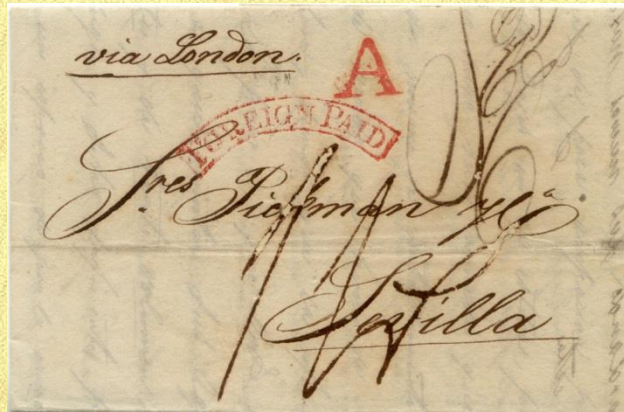 via London.
A
FOREIGN PAID
Sres Pickman y Ca
Sevilla